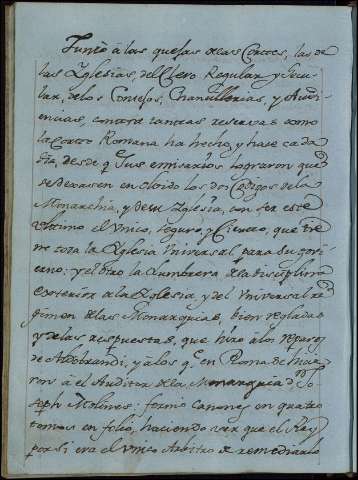 Junto à las quejas de las Cortes, las de
las Yglesias, del Clero Regular, y Secu-
lar, de los Consejos, Chancillerias, y Audi-
encias, contra tantas reservas como
la Corte Romana ha hecho, y hase cada
dia, desde q sus emisarios lograron que
se dexasen en olvido los dos Codigos de la
Monarchia, y de su Yglesia, con ser este
ultimo el unico, seguro, y cierto, que tie-
ne toda la Yglesia Universal para su govi-
erno: y el otro la lumbrera de la disciplina
exterior de la Yglesia, y del Universal re-
gimen de las Monarquias, bien regladas
y de las respuestas, que hizo à los reparos
de Aldobrandi, y à los q en Roma
à el Auditor de la Monarquia Dn Jo-
seph Molines: formò canones en quatro
tomos en folio, haciendo ver que el Rey
por si era el unico Arbitro de remediarlo